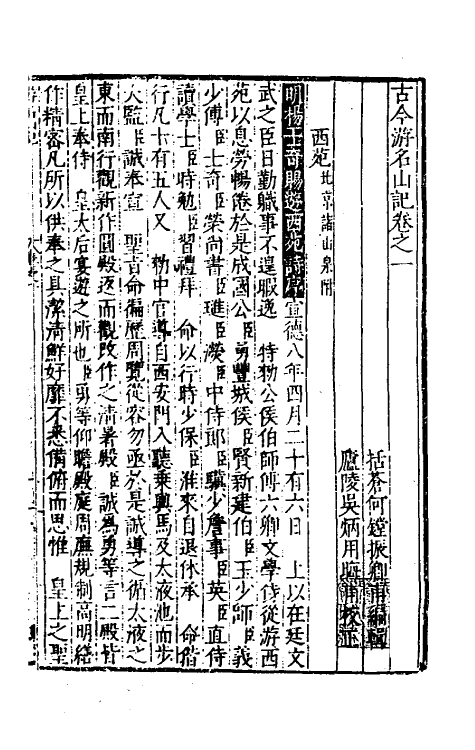 古今游名山記卷之一
括蒼何鏜振卿甫編輯
廬陵吳炳用晦甫校正
西苑北京諸山泉附
明楊士奇賜遊西苑詩序宣德八年四月二十有六日　上以在廷文
武之臣日勤職事不遑暇逸　特勑公侯伯師傅六卿文學侍從游西
苑以息勞暢倦於是成國公臣勇豐城侯臣賢新建伯臣玉少師臣義
少傅臣士奇臣榮尚書臣璡臣濙臣中侍郎臣驥少詹事臣英臣直侍
讀學士臣時勉臣習禮拜　命以行時少保臣淮來自退休承　命偕
行凡十有五人又　勑中官導自西安門入聽乘輿馬及太液池而步
太監臣誠奉宣　聖旨命徧歷周覽從容勿亟於是誠導之循太液之
東而南行觀新作圓殿返而觀改作之清暑殿臣誠爲勇等言二殿皆
皇上奉侍　皇太后宴遊之所也臣勇等仰瞻殿庭周廡規制高明繕
作精審凡所以供奉之具潔清鮮好靡不悉備俯而思惟　皇上之聖